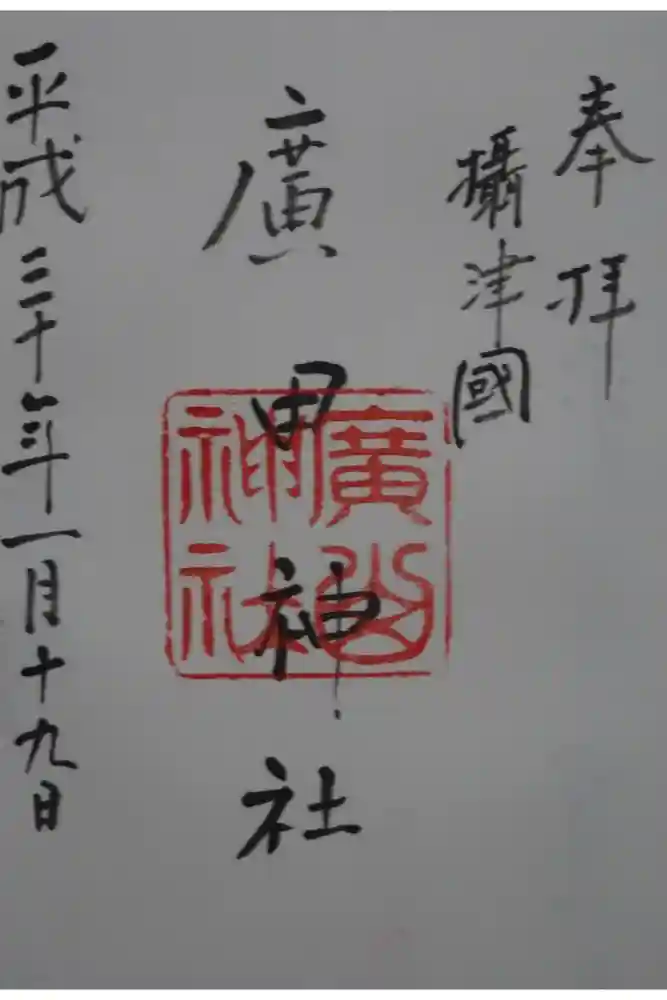 奉拝
攝津國
廣田神社
廣田神社
平成三十年一月十九日